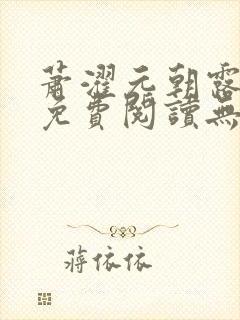 蕭濯元朝露
免費閱讀無
蔣依依